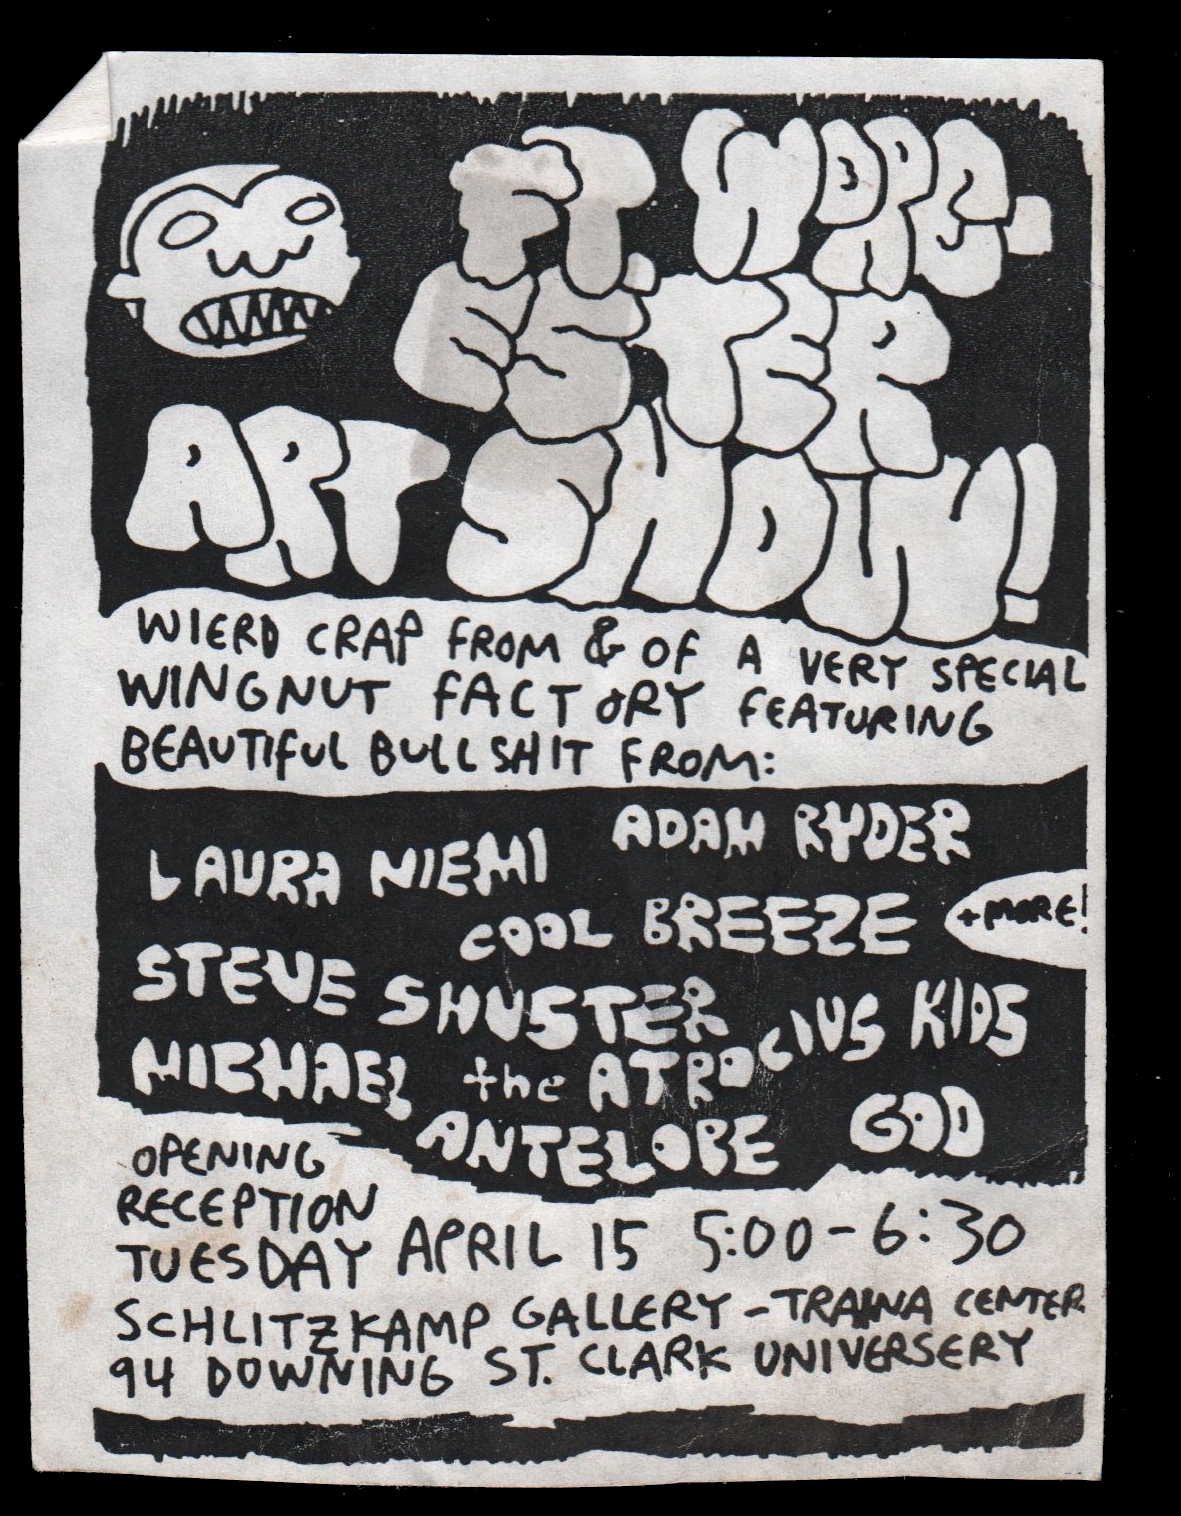 FT. WORC-
ESTER
ART SHOW!
WIERD CRAP FROM & OF A VERY SPECIAL
WINGNUT FACTORY FEATURING
BEAUTIFUL BULLSHIT FROM:
ADAM RYDER
LAURA NIEMI
COOL BREEZE +MORE!
STEVE SHUSTER
MICHAEL the ATROCIUS KIDS
ANTELOPE GOD
OPENING
RECEPTION
TUESDAY APRIL 15 5:00-6:30
SCHLITZKAMP GALLERY - TRAINA CENTER
94 DOWNING ST. CLARK UNIVERSERY